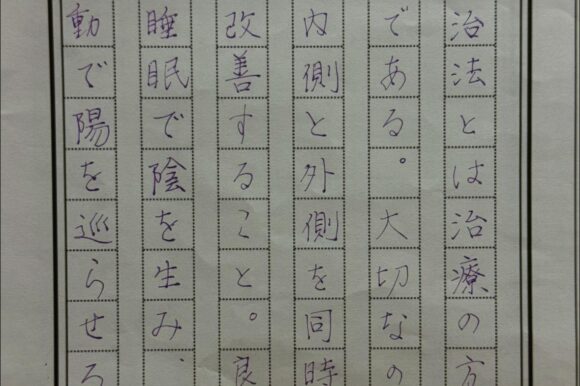 治法とは治療の方
である。大切なの
内側と外側を同時
改善すること。良
睡眠で陰を生み、
動で陽を巡らせる